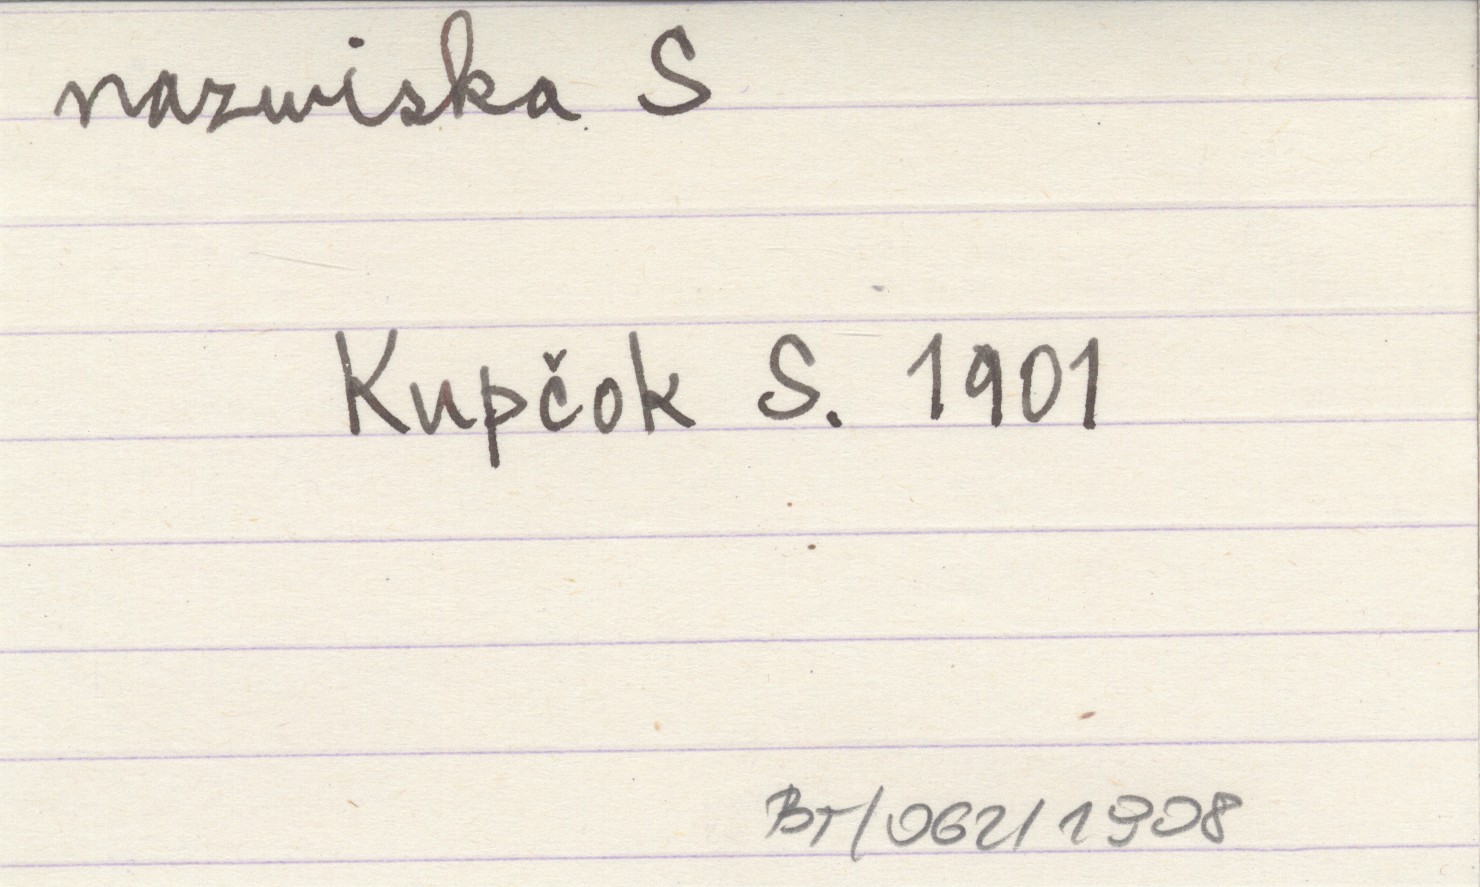 nazwiska S
Kupčok S. 1901
BT/062/1908